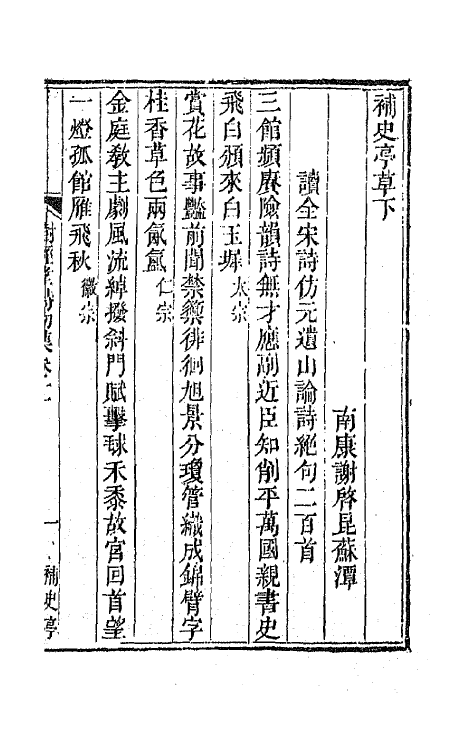 補史亭草下
南康謝啓昆蘇潭
讀全宋詩仿元遺山論詩絕句二百首
三館頻賡險韻詩無才應副近臣知削平萬國親書史
飛白頒來白玉墀太宗
賞花故事豔前聞禁籞徘徊旭景分瓊管織成錦臂字
桂香草色兩氤氳仁宗
金庭敎主劇風流綽撥斜門賦擊毬禾黍故宮回首望
一燈孤館雁飛秋徽宗
補史亭